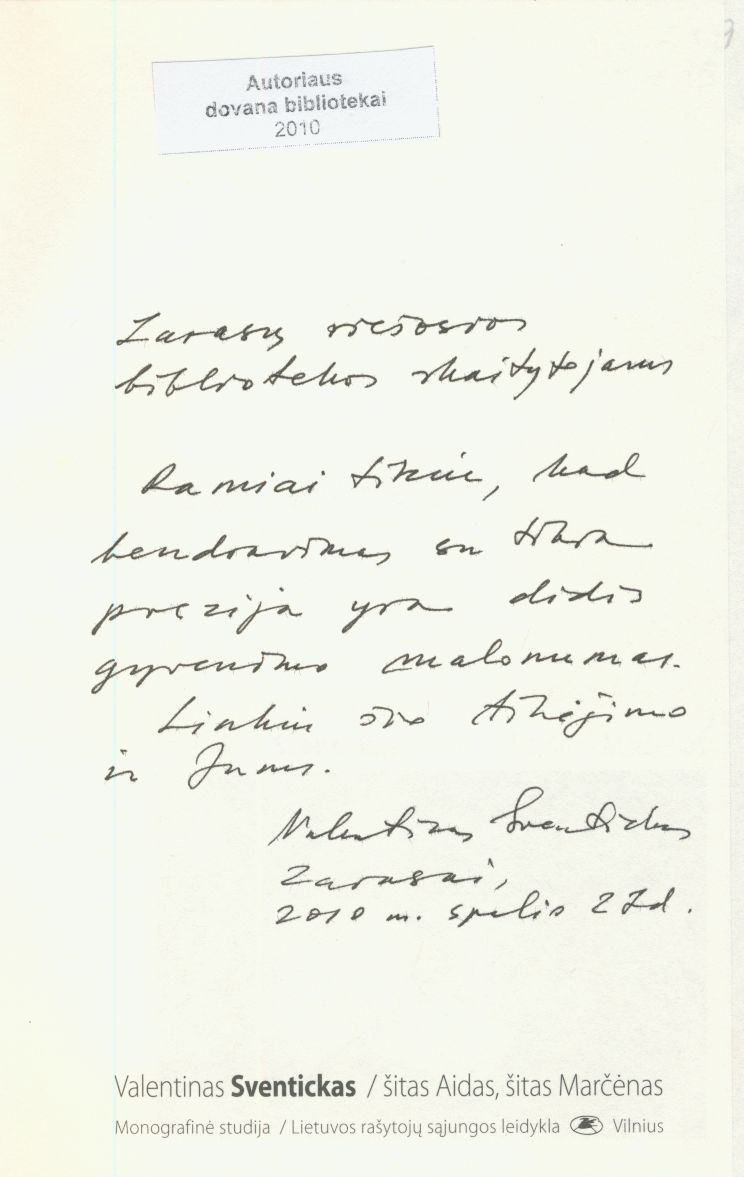 Autoriaus
dovana bibliotekai
2010
Zarasų viešosios
bibliotekos skaitytojams
Ramiai tikiu, kad
bendravimas su tikra
poezija yra didis
gyvenimo malonumas.
Linkiu šio tikėjimo
ir Jums.
Valentinas Sventickas
Zarasai,
2010 m. spalio 27 d.
Valentinas Sventickas / šitas Aidas, šitas Marčėnas
Monografinė studija / Lietuvos rašytojų sąjungos leidykla Vilnius